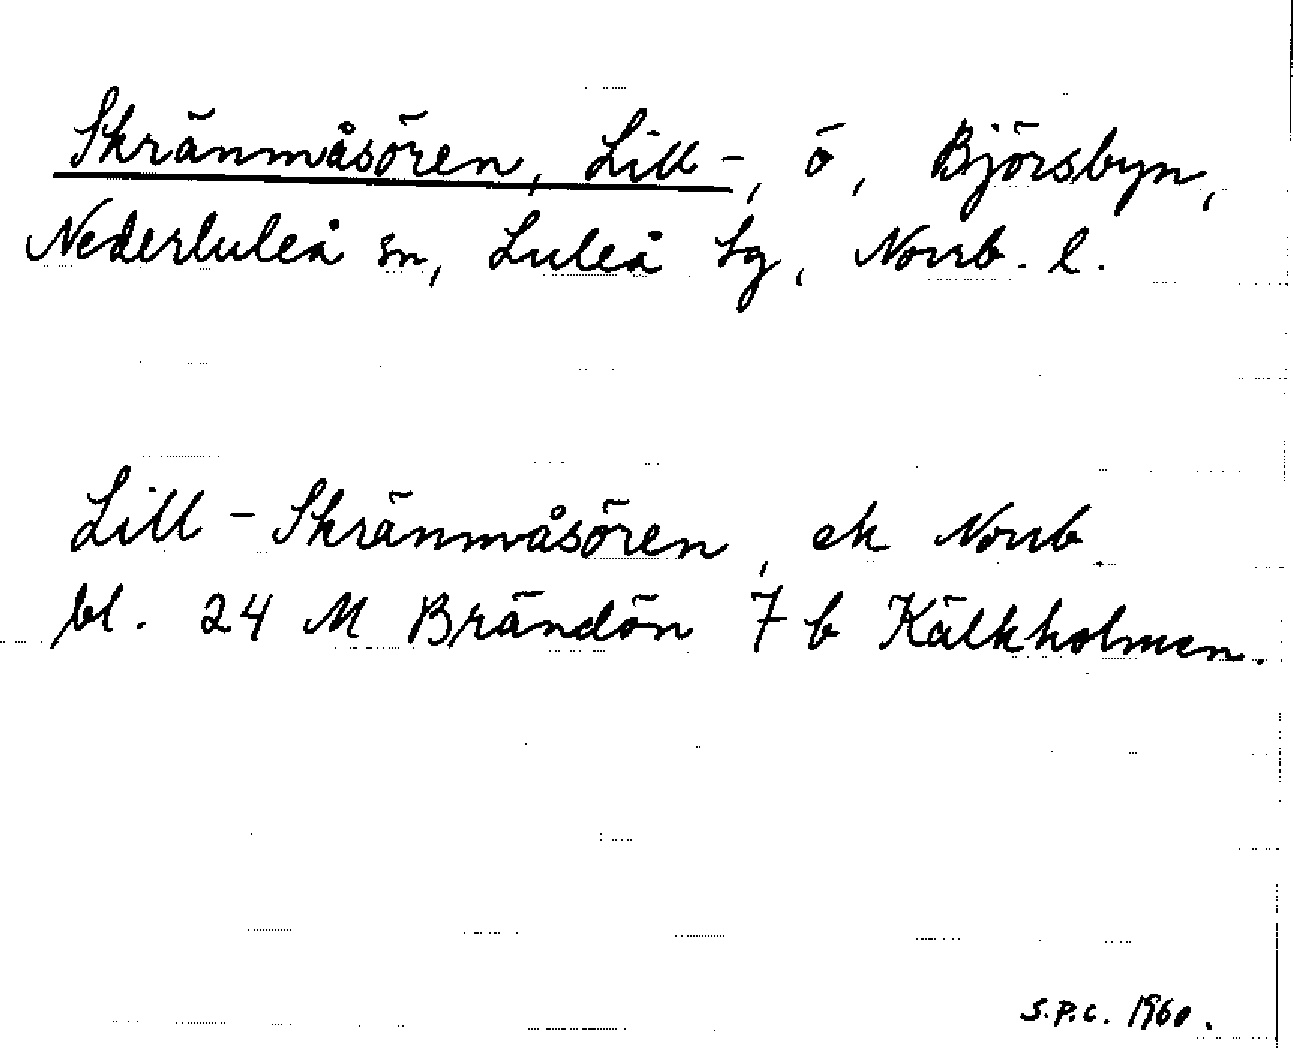 Skränmåsören, Lill-, ö, Björsbyn,
Nederluleå sn, Luleå tg, Norrb. l.
Lill-Skränmåsören, ek Norrb.
bl. 24 M Brändön 7 b Kälkholmen.
S.P.C. 1960.